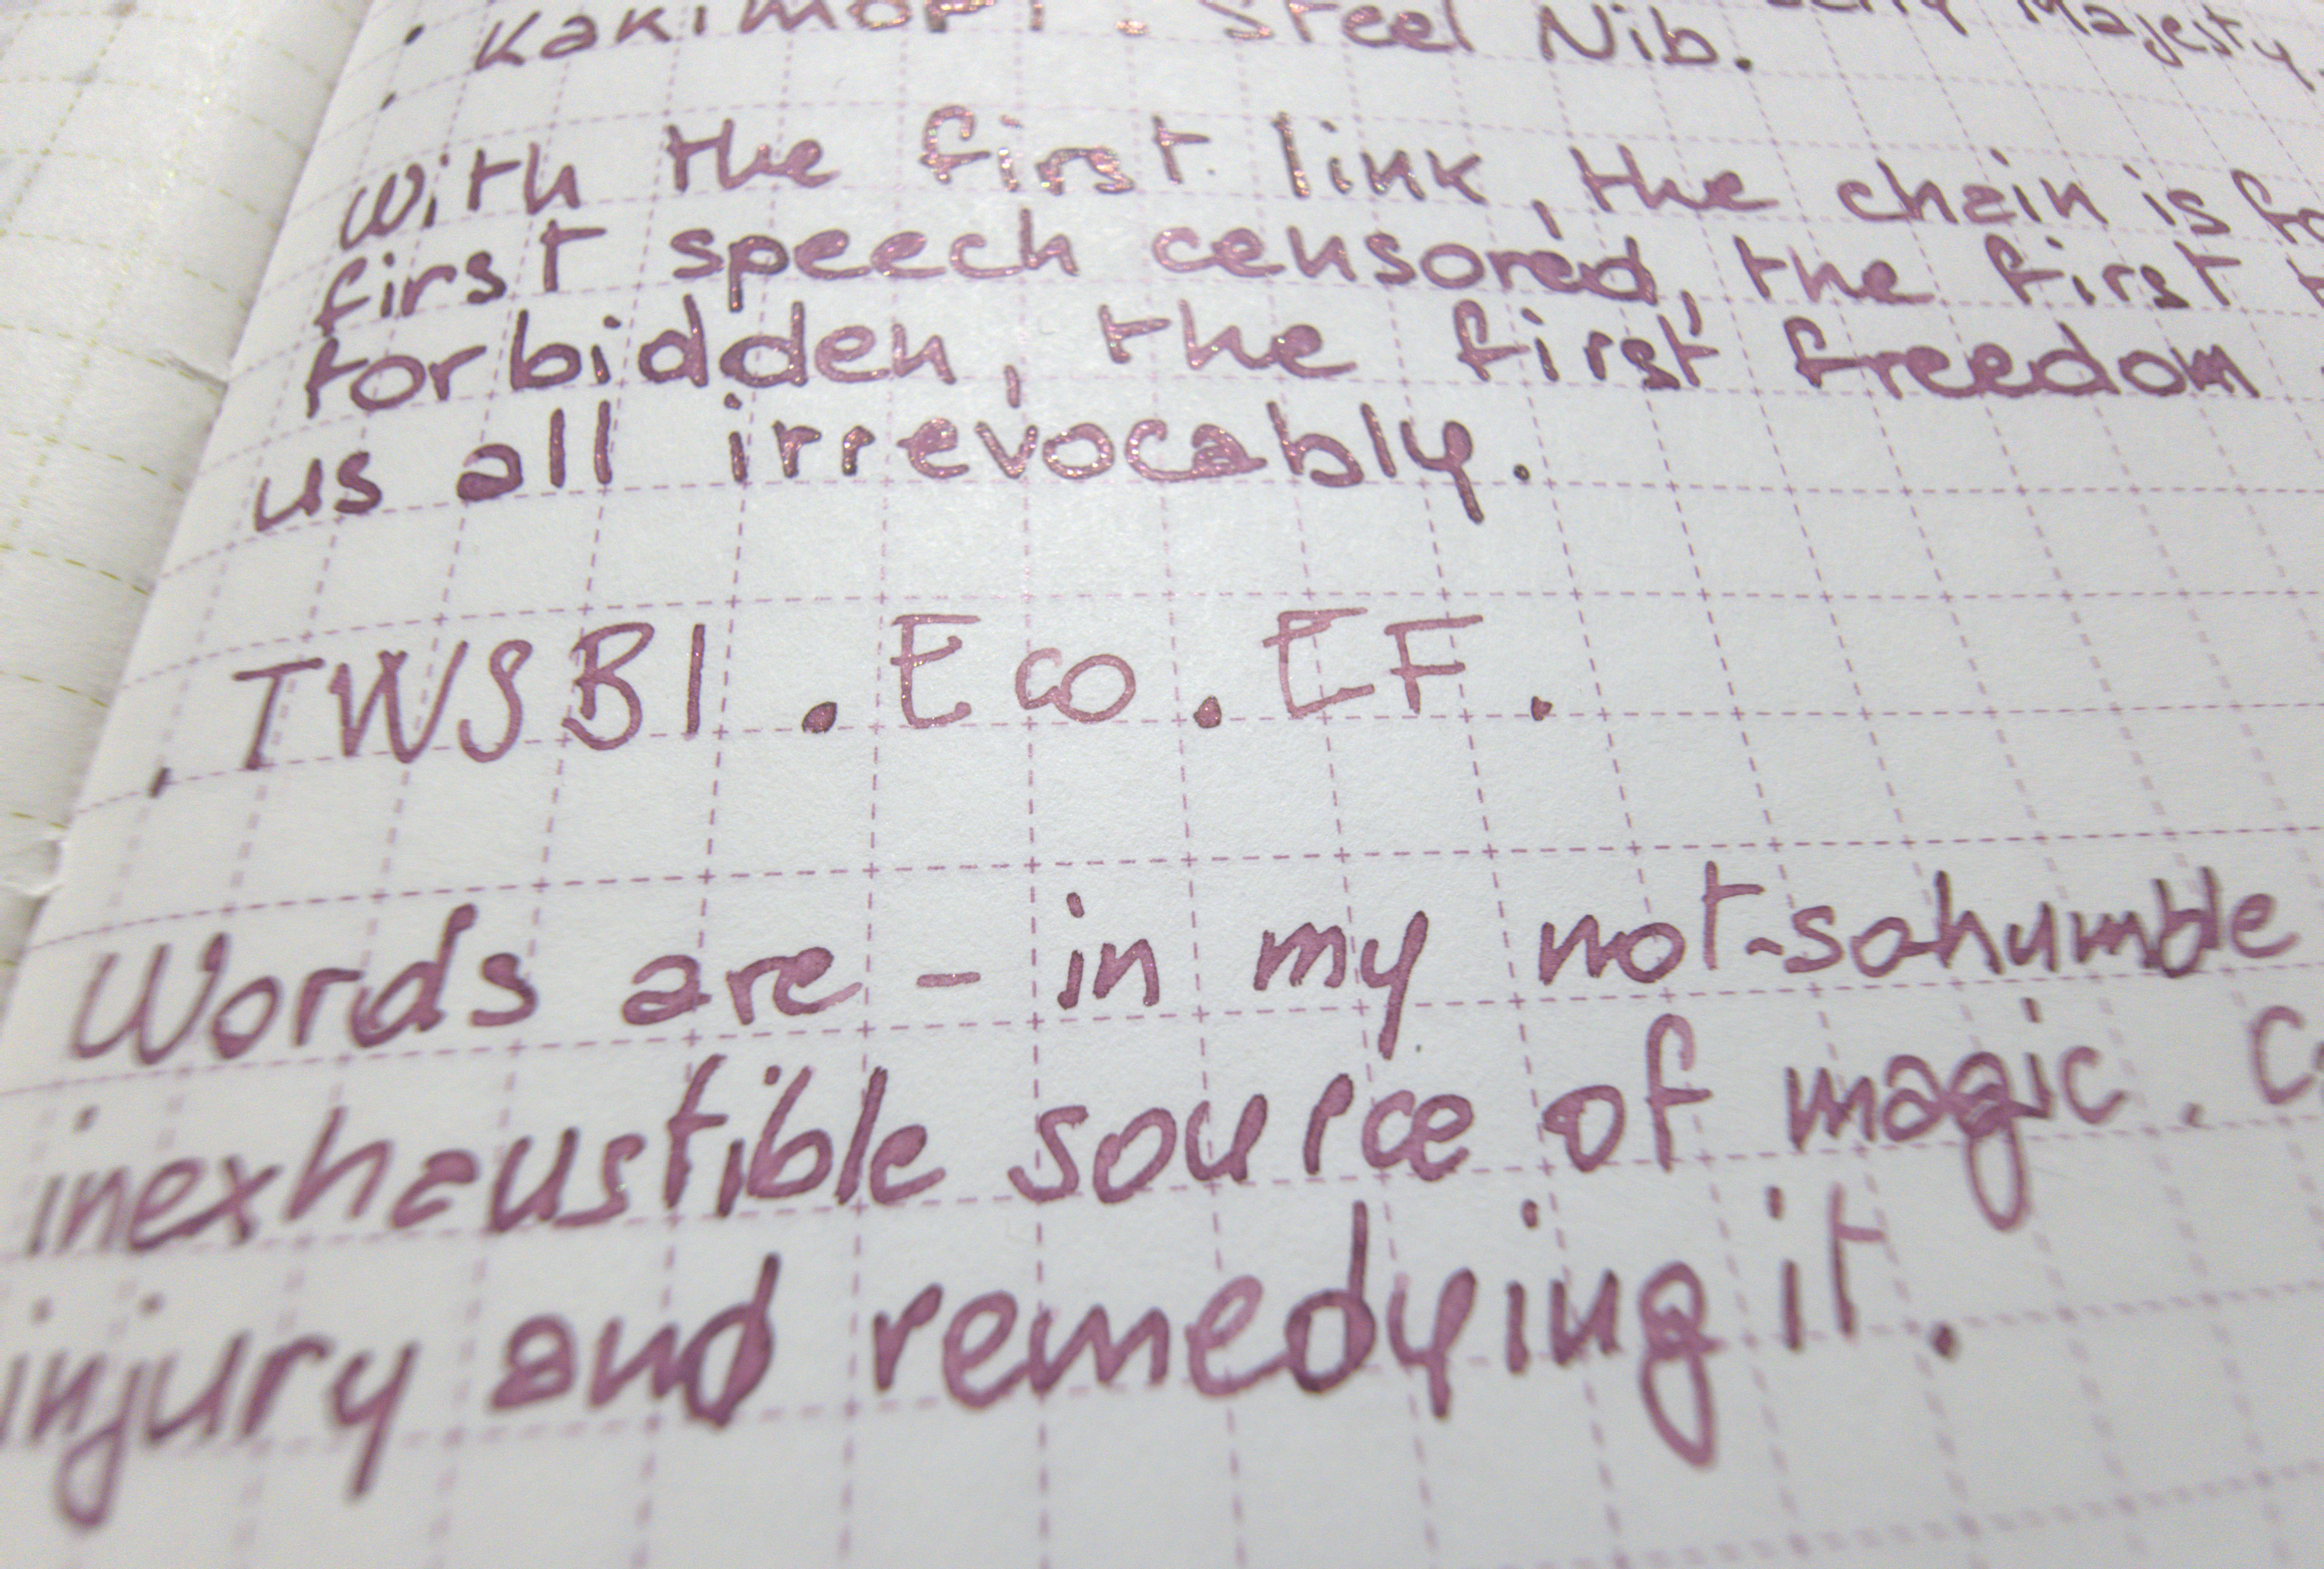 . Kakimori . Steel Nib. Majesty
.
With the first link, the chain is
first speech censored, the first
forbidden, the first freedom
us all irrevocably.
. TWSBI . Eco . EF .
Words are - in my not-sohumble
inexhaustible source of magic.
injury and remedying it.